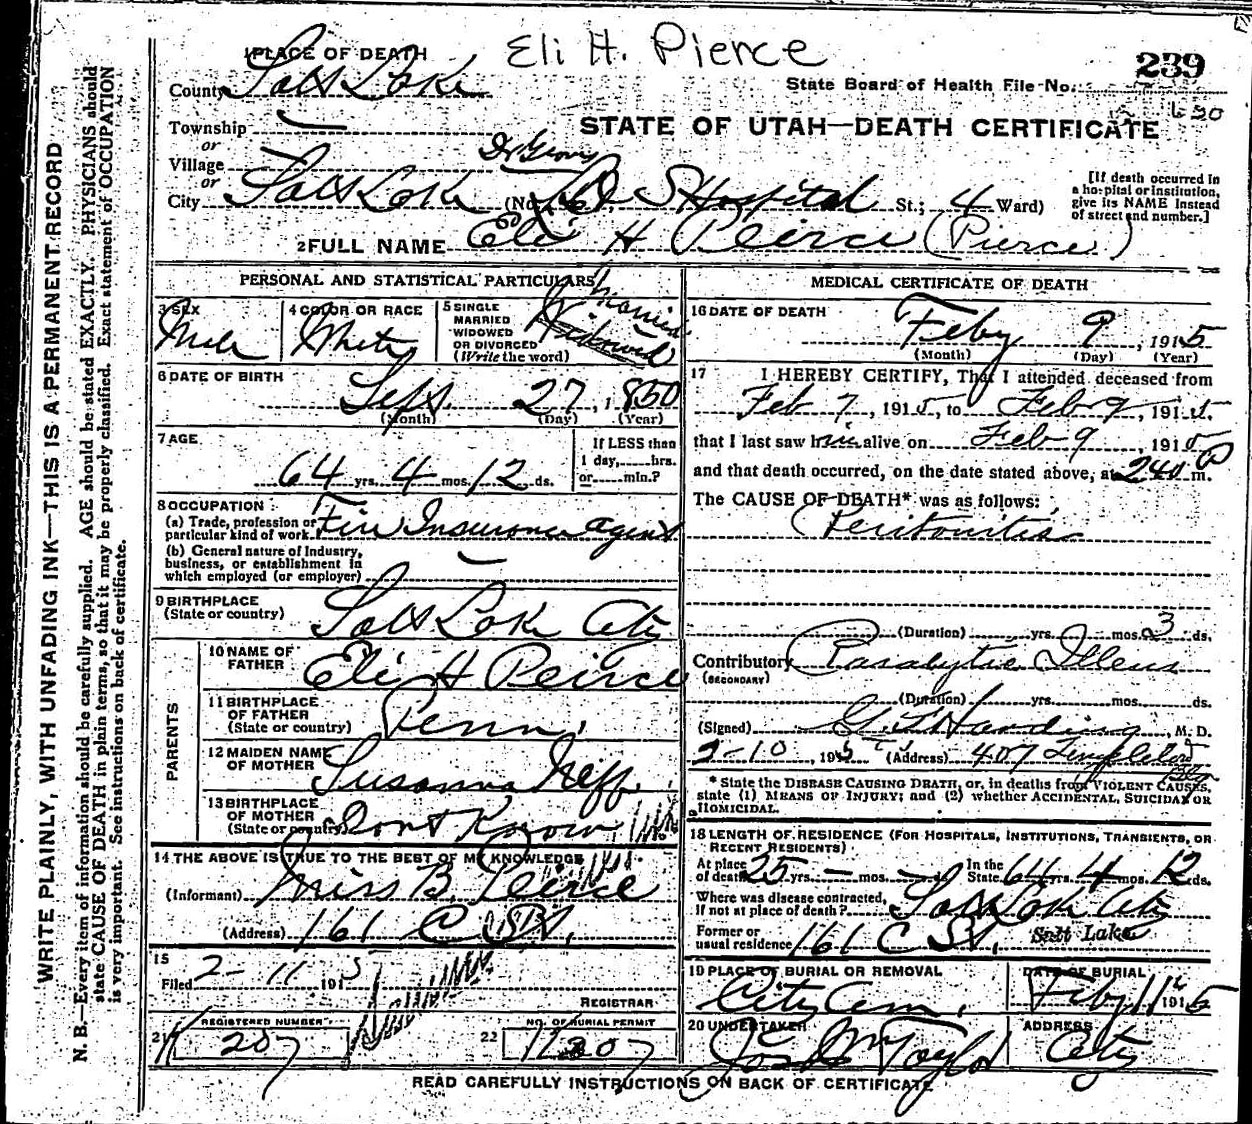 Eli H. Pierce
1 PLACE OF DEATH
239
County Salt Lake
State Board of Health File No.
Township
or
STATE OF UTAH—DEATH CERTIFICATE
Village
or
City Salt Lake (No. L D S Hospital St.; 4 Ward)
[If death occurred in
a hospital or institution,
give its NAME instead
of street and number.]
2 FULL NAME Eli H Peirce (Pierce)
PERSONAL AND STATISTICAL PARTICULARS
3 SEX Male
4 COLOR OR RACE White
5 SINGLE
MARRIED
WIDOWED
OR DIVORCED
(Write the word)
Married
Widowed
6 DATE OF BIRTH
Sept. 27, 1850
(Month) (Day) (Year)
7 AGE
64 yrs. 4 mos. 12 ds.
If LESS than
1 day, hrs.
or min.?
8 OCCUPATION
(a) Trade, profession or
particular kind of work Fire Insurance agent
(b) General nature of industry,
business, or establishment in
which employed (or employer)
9 BIRTHPLACE
(State or country) Salt Lake City
PARENTS
10 NAME OF
FATHER Eli H Peirce
11 BIRTHPLACE
OF FATHER
(State or country) Penn.
12 MAIDEN NAME
OF MOTHER Susanna Neff
13 BIRTHPLACE
OF MOTHER
(State or country) Dont Know
14 THE ABOVE IS TRUE TO THE BEST OF MY KNOWLEDGE
(Informant) Miss B. Peirce
(Address) 161 C St.
15
Filed 2-11 1915
REGISTRAR
21 REGISTERED NUMBER 207
22 NO. OF BURIAL PERMIT 207
MEDICAL CERTIFICATE OF DEATH
16 DATE OF DEATH
Feby 9, 1915
(Month) (Day) (Year)
17 I HEREBY CERTIFY, That I attended deceased from
Feb 7, 1915, to Feb 9, 1915.
that I last saw him alive on Feb 9 1915
and that death occurred, on the date stated above, at 240 P m.
The CAUSE OF DEATH* was as follows:
Peritonitis
(Duration) yrs. mos. 3 ds.
Contributory Paralytic Illeus
(SECONDARY)
(Duration) yrs. mos. ds.
(Signed) G. T. Harding, M. D.
2-10, 1915 (Address) 407 Templeton Bldg
* State the DISEASE CAUSING DEATH, or, in deaths from VIOLENT CAUSES,
state (1) MEANS OF INJURY; and (2) whether ACCIDENTAL, SUICIDAL OR
HOMICIDAL.
18 LENGTH OF RESIDENCE (FOR HOSPITALS, INSTITUTIONS, TRANSIENTS, OR
RECENT RESIDENTS)
At place
of death 25 yrs. — mos. — ds. In the
State 64 yrs. 4 mos. 12 ds.
Where was disease contracted,
if not at place of death? Salt Lake City
Former or
usual residence 161 C St. Salt Lake
19 PLACE OF BURIAL OR REMOVAL
City Cem.
DATE OF BURIAL
Feby 11 1915
20 UNDERTAKER
Jos Wm Taylor
ADDRESS
City
READ CAREFULLY INSTRUCTIONS ON BACK OF CERTIFICATE
WRITE PLAINLY, WITH UNFADING INK—THIS IS A PERMANENT RECORD
N. B.—Every item of information should be carefully supplied. AGE should be stated EXACTLY. PHYSICIANS should
state CAUSE OF DEATH in plain terms, so that it may be properly classified. Exact statement of OCCUPATION
is very important. See instructions on back of certificate.